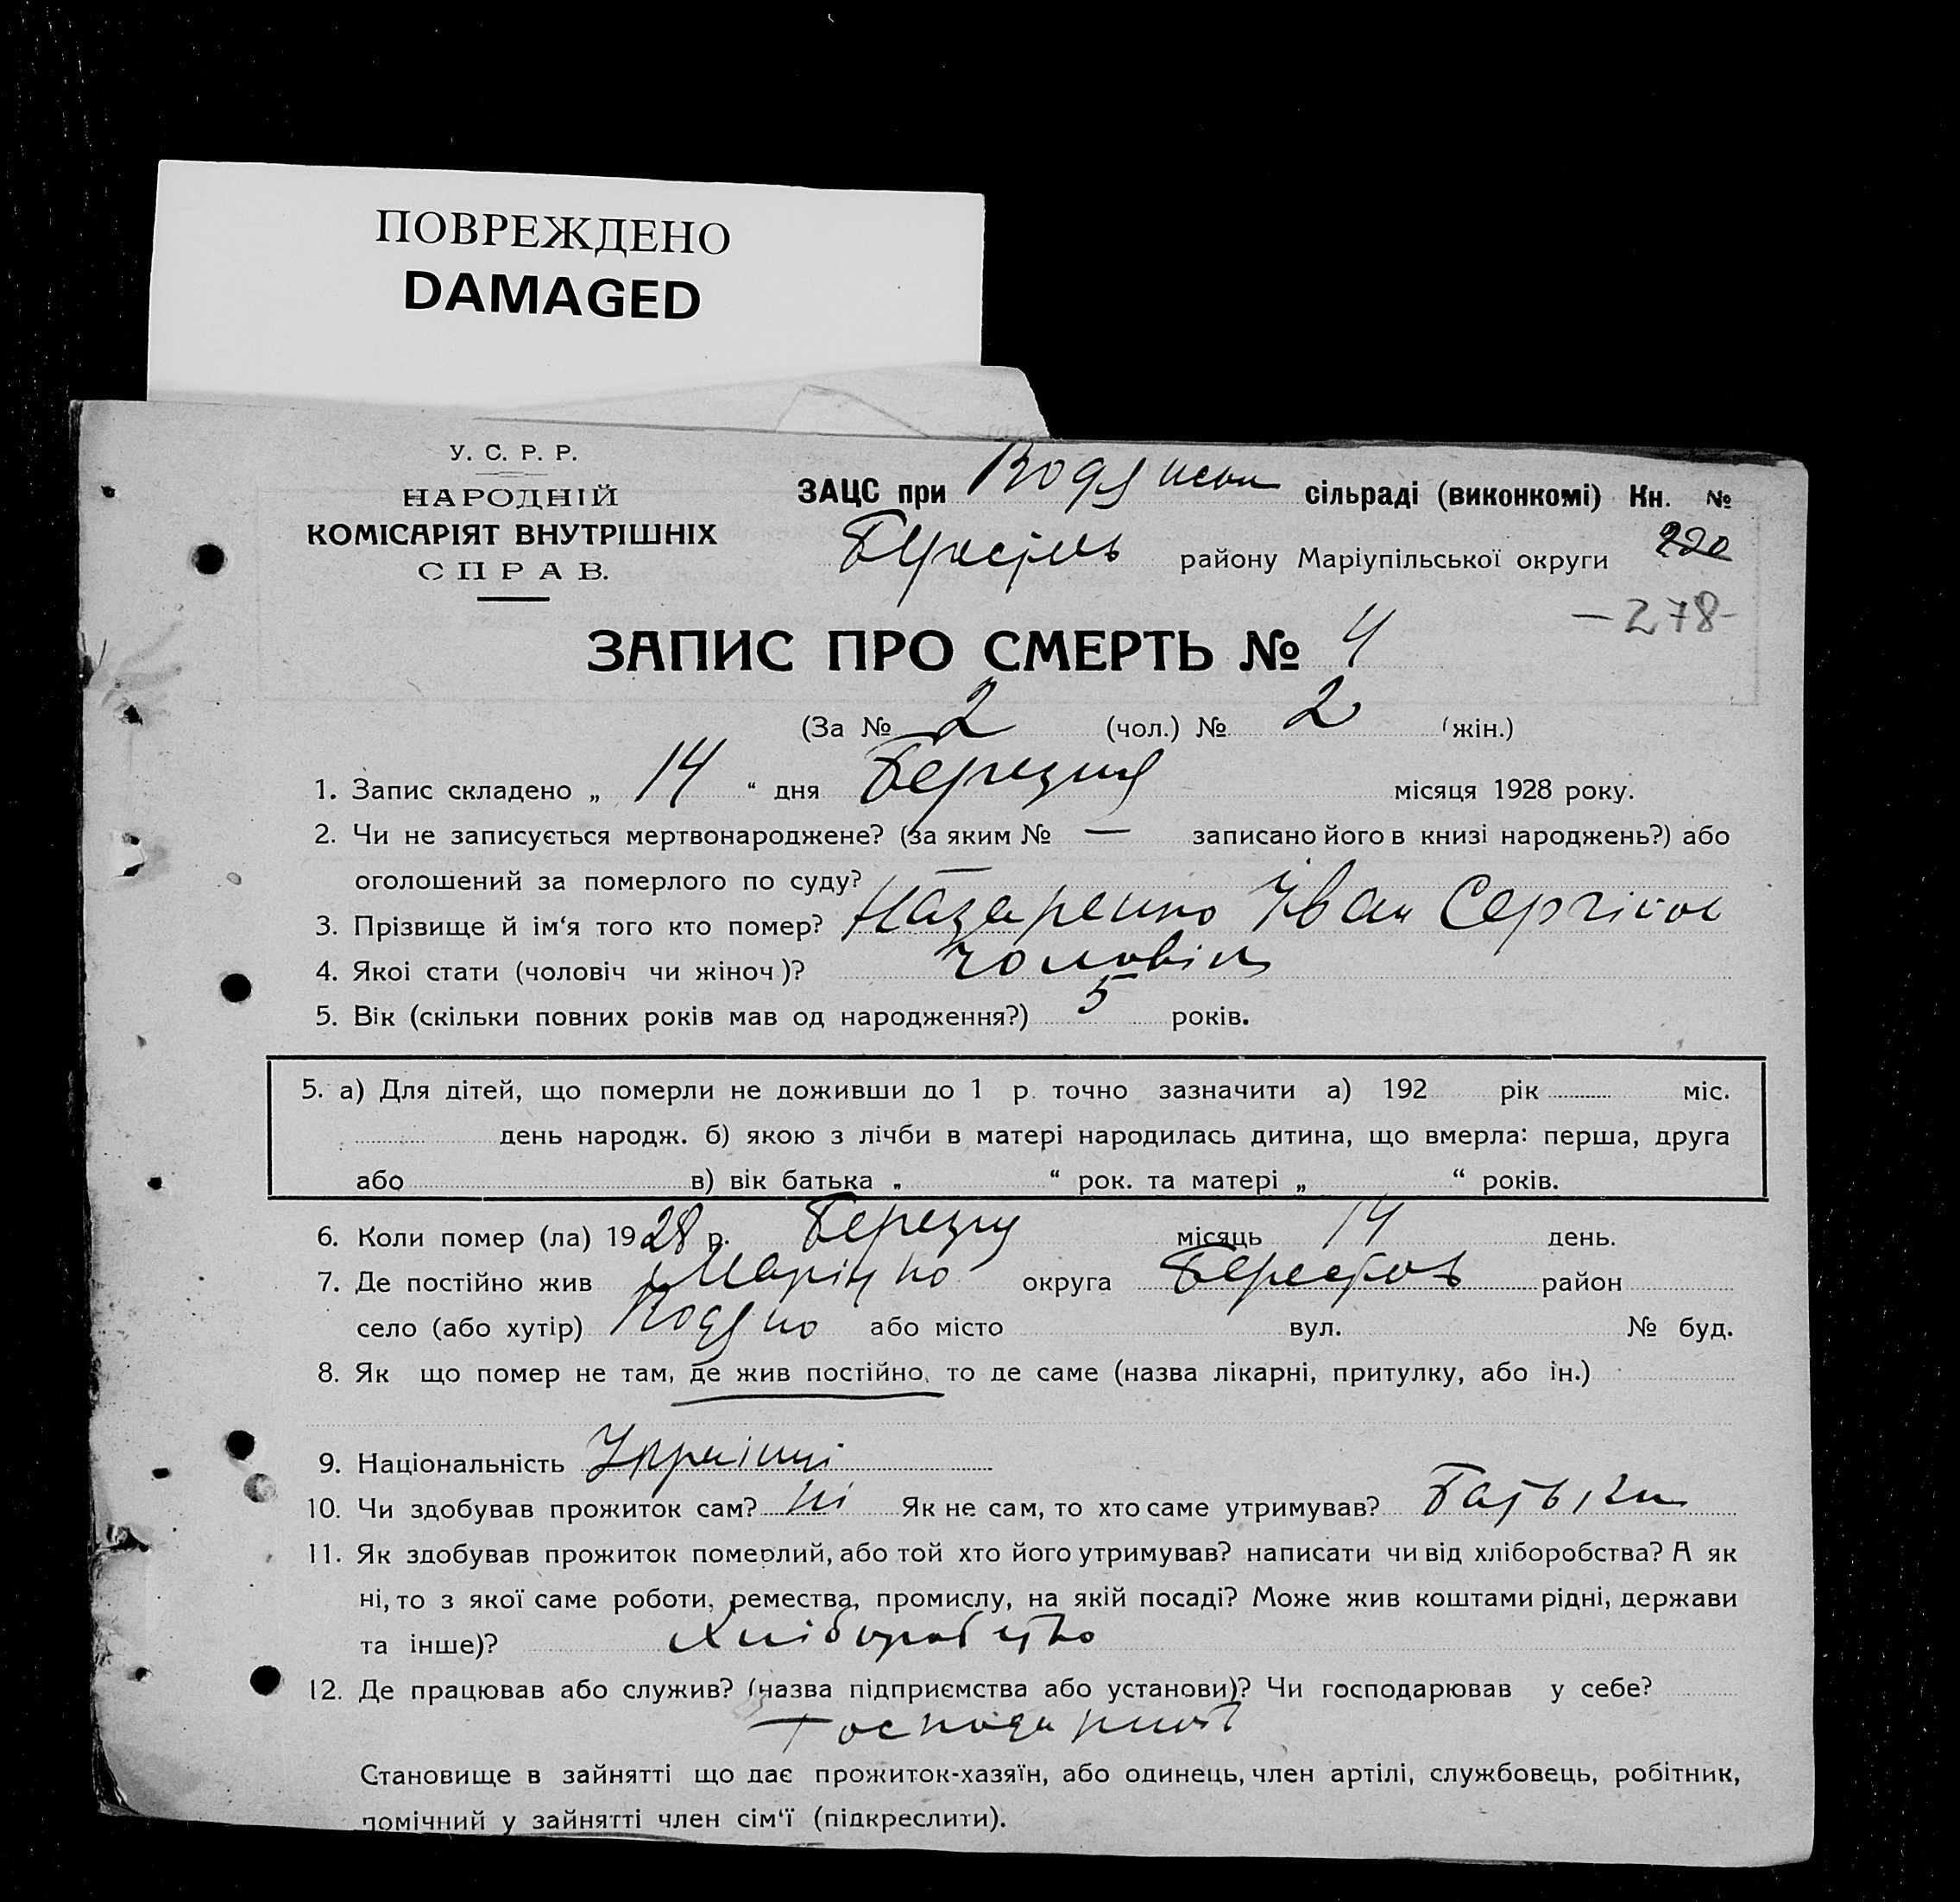 ПОВРЕЖДЕНО
DAMAGED
У. С. Р. Р.
НАРОДНІЙ
КОМІСАРІЯТ ВНУТРІШНІХ
СПРАВ.
ЗАЦС при сільраді (виконкомі) Кн. №
району Маріупільської округи 220
-278-
ЗАПИС ПРО СМЕРТЬ № 4
(За № 2 (чол.) № 2 (жін.)
1. Запис складено „ 14 “ дня Березня місяця 1928 року.
2. Чи не записується мертвонароджене? (за яким № — записано його в книзі народжень?) або
оголошений за померлого по суду? —
3. Прізвище й ім‘я того кто помер? Назаренко Іван
4. Якоі стати (чоловіч чи жіноч)? чоловіч
5. Вік (скільки повних років мав од народження?) 5 років.
5. а) Для дітей, що померли не доживши до 1 р. точно зазначити а) 192 рік міс.
день народж. б) якою з лічби в матері народилась дитина, що вмерла: перша, друга
або в) вік батька „ “ рок. та матері „ “ років.
6. Коли помер (ла) 1928 р. місяць 14 день.
7. Де постійно жив округа район
село (або хутір) або місто вул. № буд.
8. Як що помер не там, де жив постійно, то де саме (назва лікарні, притулку, або ін.)
9. Національність
10. Чи здобував прожиток сам? ні Як не сам, то хто саме утримував? Батьки
11. Як здобував прожиток померлий, або той хто його утримував? написати чи від хліборобства? А як
ні, то з якої саме роботи, ремества, промислу, на якій посаді? Може жив коштами рідні, держави
та інше)?
12. Де працював або служив? (назва підприємства або установи)? Чи господарював у себе?
Становище в зайнятті що дає прожиток-хазяїн, або одинець, член артілі, службовець, робітник,
помічний у зайнятті член сім‘ї (підкреслити).